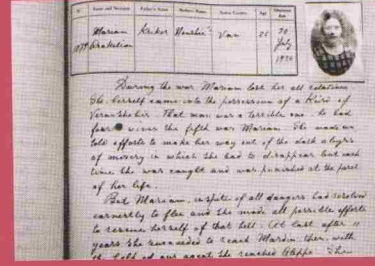 Name and Surname Father's Name Mother's Name Native Country Age Admission Date
Mariam Krikor Van 25 30
1079 July
1926
During the war Mariam lost her all relatives.
She herself came into the possession of a Kurd of
That man was a terrible one. he had
wives the fifth was Mariam. She made un
told efforts to make her way out of the dark abyss
of misery in which she had to disappear but each
time she was caught and was punished at the peril
of her life.
But Mariam, inspite of all dangers had resolved
earnestly to flee and she made all possible efforts
to rescue herself of that hell. At last after 11
years She succeeded to reach Mardin, then, with
the help of our agent she reached Aleppo. The